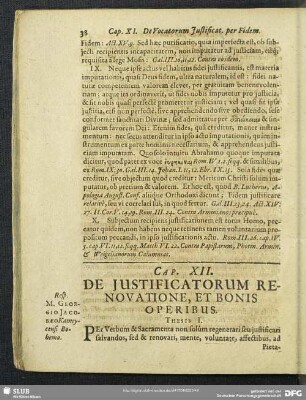 38 Cap. XI. De Vocatorum Justificat. per Fidem.
Fidem: Act. XV, 9. Sed hæc purificatio, quia imperfecta est, ob sub-
jecti recipientis incapacitatem, non imputatur ad justitiam,
requisita à lege Mosis: Gal. III. 10, 11, 12. Contra eosdem.
IX. Neque ipse actus vel habitus fidei justificantis, est materia
imputationis, quasi Deus fidem, ultra naturalem, id est: fidei na-
turæ competentem valorem elevet, per gratuitam benevolen-
tiam: atque ita ordinaverit, ut fides nobis imputetur pro justitia,
& sit nobis quasi perfectè promereatur justitiam; vel quasi sit ipsa
justitia, etsi non sit perfectè, sive apprehendendo sive obediendo, ipsi
conformis sanctitati Divinæ, sed admittatur per
gularem favorem Dei: Etenim fides, quà creditur, manet instru-
mentum: nec sequi attenditur in ipso actu imputationis, quàm in-
strumentum ex parte hominis recipientis, & apprehendentis justi-
tiam imputatam. Quo solo intuitu Abrahamo quoque imputata
dicitur, quod patet ex voce Rom. IV. 1, 2. seqq. & similibus,
ex Rom. IX, 30. Gal. III. 14. Johan. I. 11, 12. Ebr. IX. 15. Sola fides quæ
creditur, sive objectum quod creditur: Meritum Christi solum im-
putatur, ob pretium & valorem. Et hoc est, quod B. Lutherus, A-
pologia August. Conf. aliique Orthodoxi dicunt; Fidem justificare
relativè, seu vi correlati sui, in quod fertur. Gal. III. 23, 24. Act. XIV.
27. II. Cor. V. 14, 19. Rom. III. 24. Contra Arminianos præcipuè.
X. Subjectum recipiens justificationem, est totus Homo, pec-
cator quidem, non habens neque retinens tamen voluntarium pro-
positum peccandi, in ipso justificationis actu. Rom. III. 28. cap. IV.
5. cap. VI. 11, 12. seqq. Matth. VI. 12. Contra Papistarum, Photin. Armin.
& Weigelianorum Calumnias.
CAP. XII.
DE JUSTIFICATORUM RE-
NOVATIONE, ET BONIS
OPERIBUS.
Resp.
M. GEOR-
GIO JACO-
BÆO
Bo-
hemo.
THESIS I.
PEr Verbum & Sacramenta non solùm regenerari seu justificari
salvandos, sed & renovari, mente, voluntate, affectibus, ad
Pieta-